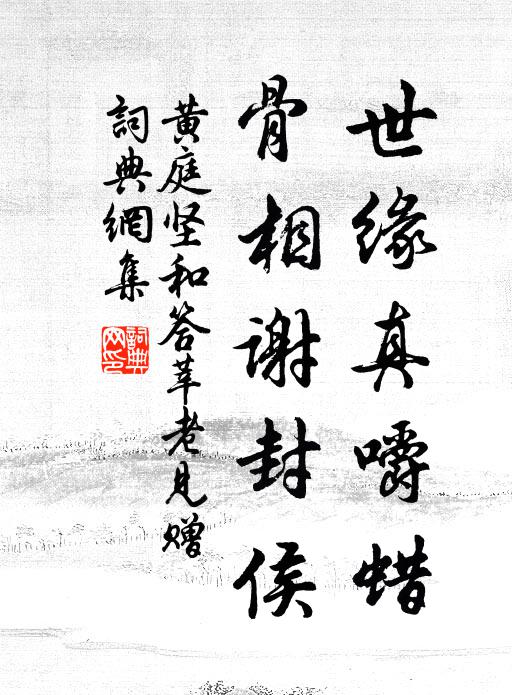 世缘真嚼蜡
骨相谢封侯
黄庭坚和答莘老见赠
詞典網集
詞典
网印